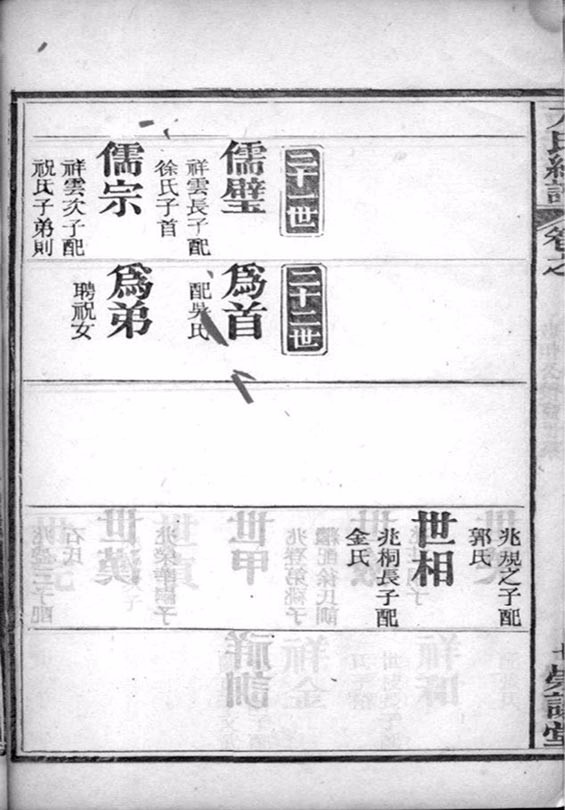 卷之
二十一世
儒璧
祥雲長子配
徐氏子首
儒宗
祥雲次子配
祝氏子弟則
二十二世
爲首
配吳氏
爲弟
聘祝女
兆規之子配
郭氏
世相
兆桐長子配
金氏